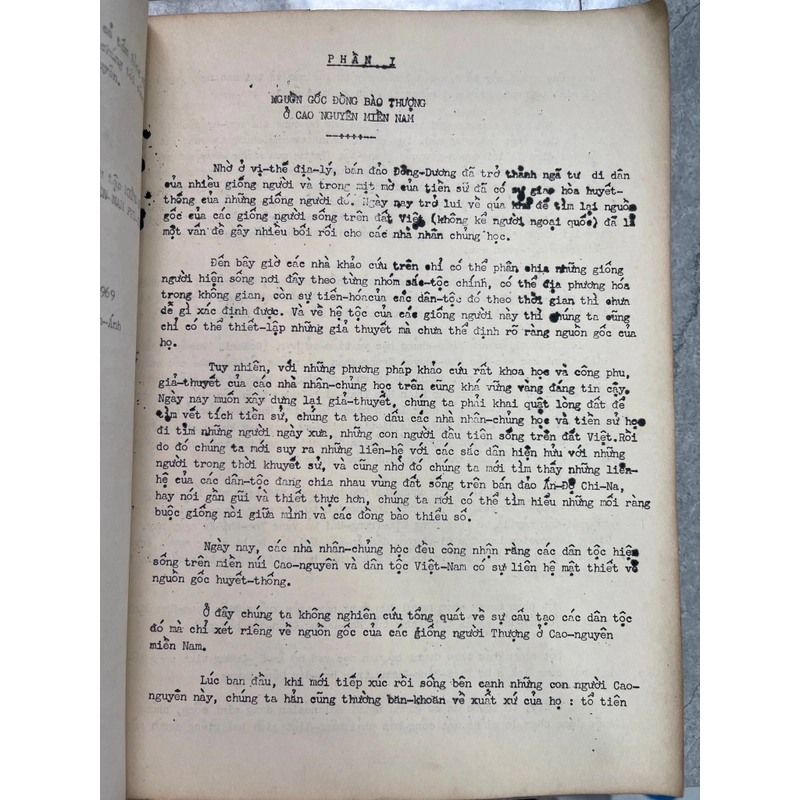 PHẦN I
NGUỒN GỐC ĐỒNG BÀO THƯỢNG
Ở CAO NGUYÊN MIỀN NAM
Nhờ ở vị-thế địa-lý, bán đảo Đông-Dương đã trở thành ngã tư di dân
của nhiều giống người và trong mịt mờ của tiền sử đã có sự giao hòa huyết-
thống của những giống người đó. Ngày nay trở lui về quá khứ để tìm lại nguồn
gốc của các giống người sống trên đất Việt (không kể người ngoại quốc) đã là
một vấn đề gây nhiều bối rối cho các nhà nhân chủng học.
Đến bây giờ các nhà khảo cứu trên chỉ có thể phân chia những giống
người hiện sống nơi đây theo từng nhóm sắc-tộc chính, có thể địa phương hóa
trong không gian, còn sự tiến-hóa của các dân-tộc đó theo thời gian thì chưa
dễ gì xác định được. Và về hệ tộc của các giống người này thì chúng ta cũng
chỉ có thể thiết-lập những giả thuyết mà chưa thể định rõ ràng nguồn gốc của
họ.
Tuy nhiên, với những phương pháp khảo cứu rất khoa học và công phu,
giả-thuyết của các nhà nhân-chủng học trên cũng khá vững vàng đáng tin cậy.
Ngày nay muốn xây dựng lại giả-thuyết, chúng ta phải khai quật lòng đất để
tìm vết tích tiền sử, chúng ta theo dấu các nhà nhân-chủng học và tiền sử học
đi tìm những người ngày xưa, những con người đầu tiên sống trên đất Việt.Rồi
do đó chúng ta mới suy ra những liên-hệ với các sắc dân hiện hữu với những
người trong thời khuyết sử, và cũng nhờ đó chúng ta mới tìm thấy những liên-
hệ của các dân-tộc đang chia nhau vùng đất sống trên bán đảo Ấn-Độ Chi-Na,
hay nói gần gũi và thiết thực hơn, chúng ta mới có thể tìm hiểu những mối ràng
buộc giống nòi giữa mình và các đồng bào thiểu số.
Ngày nay, các nhà nhân-chủng học đều công nhận rằng các dân tộc hiện
sống trên miền núi Cao-nguyên và dân tộc Việt-Nam có sự liên hệ mật thiết về
nguồn gốc huyết-thống.
Ở đây chúng ta không nghiên cứu tổng quát về sự cấu tạo các dân tộc
đó mà chỉ xét riêng về nguồn gốc của các giống người Thượng ở Cao-nguyên
miền Nam.
Lúc ban đầu, khi mới tiếp xúc rồi sống bên cạnh những con người Cao-
nguyên này, chúng ta hẳn cũng thường băn-khoăn về xuất xứ của họ : tổ tiên